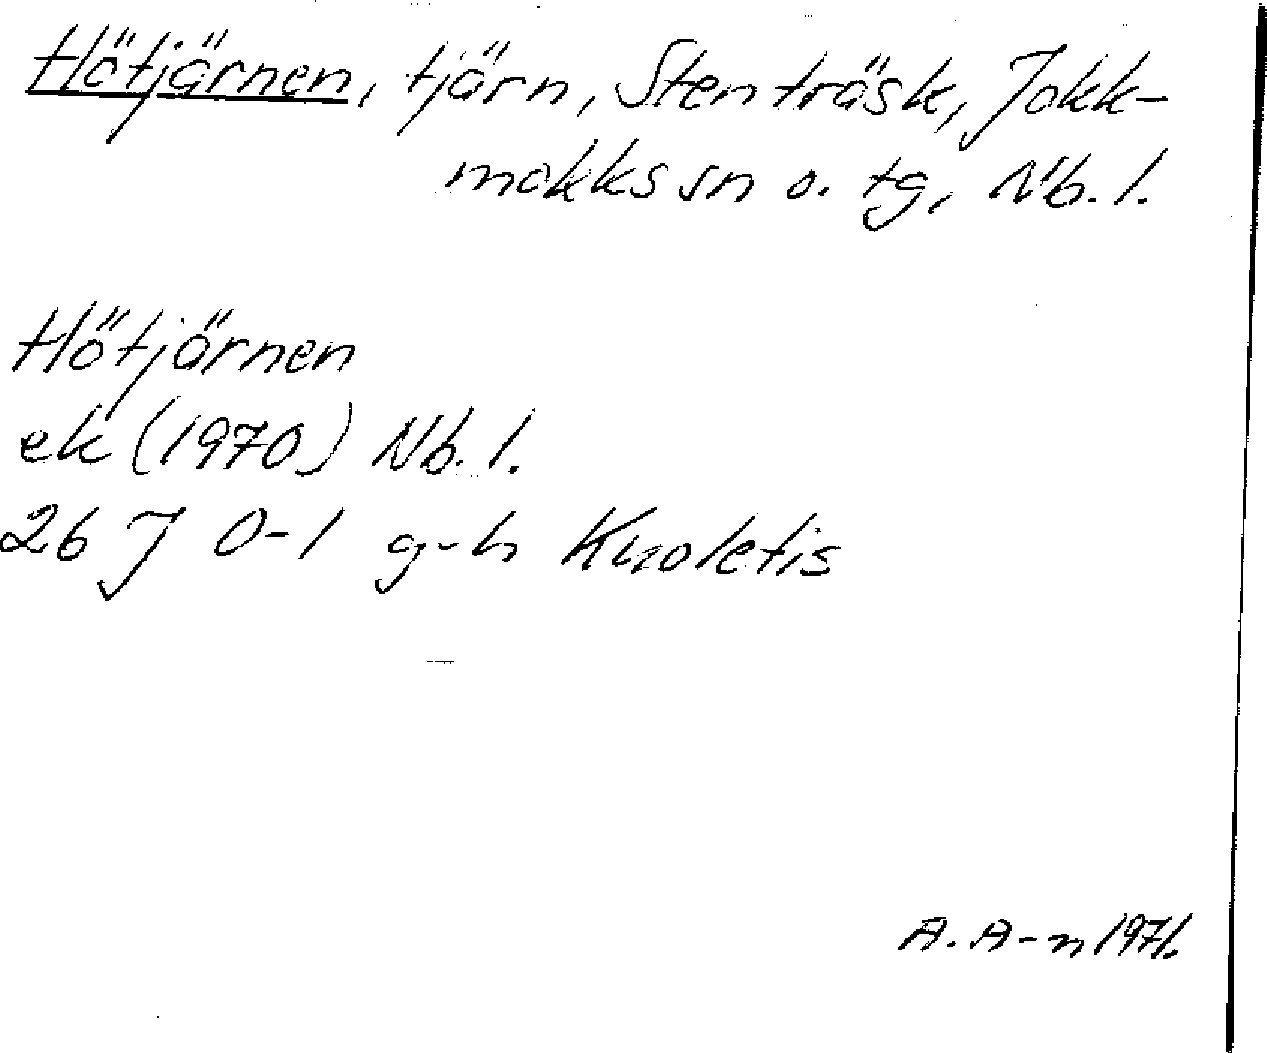 Hötjärnen, tjärn, Stenträsk, Jokk-
mokks sn o. tg, Nb. l.
Hötjärnen
ek (1970) Nb. l.
26 J 0-1 g-h Kuoletis
A. A-n 1971.